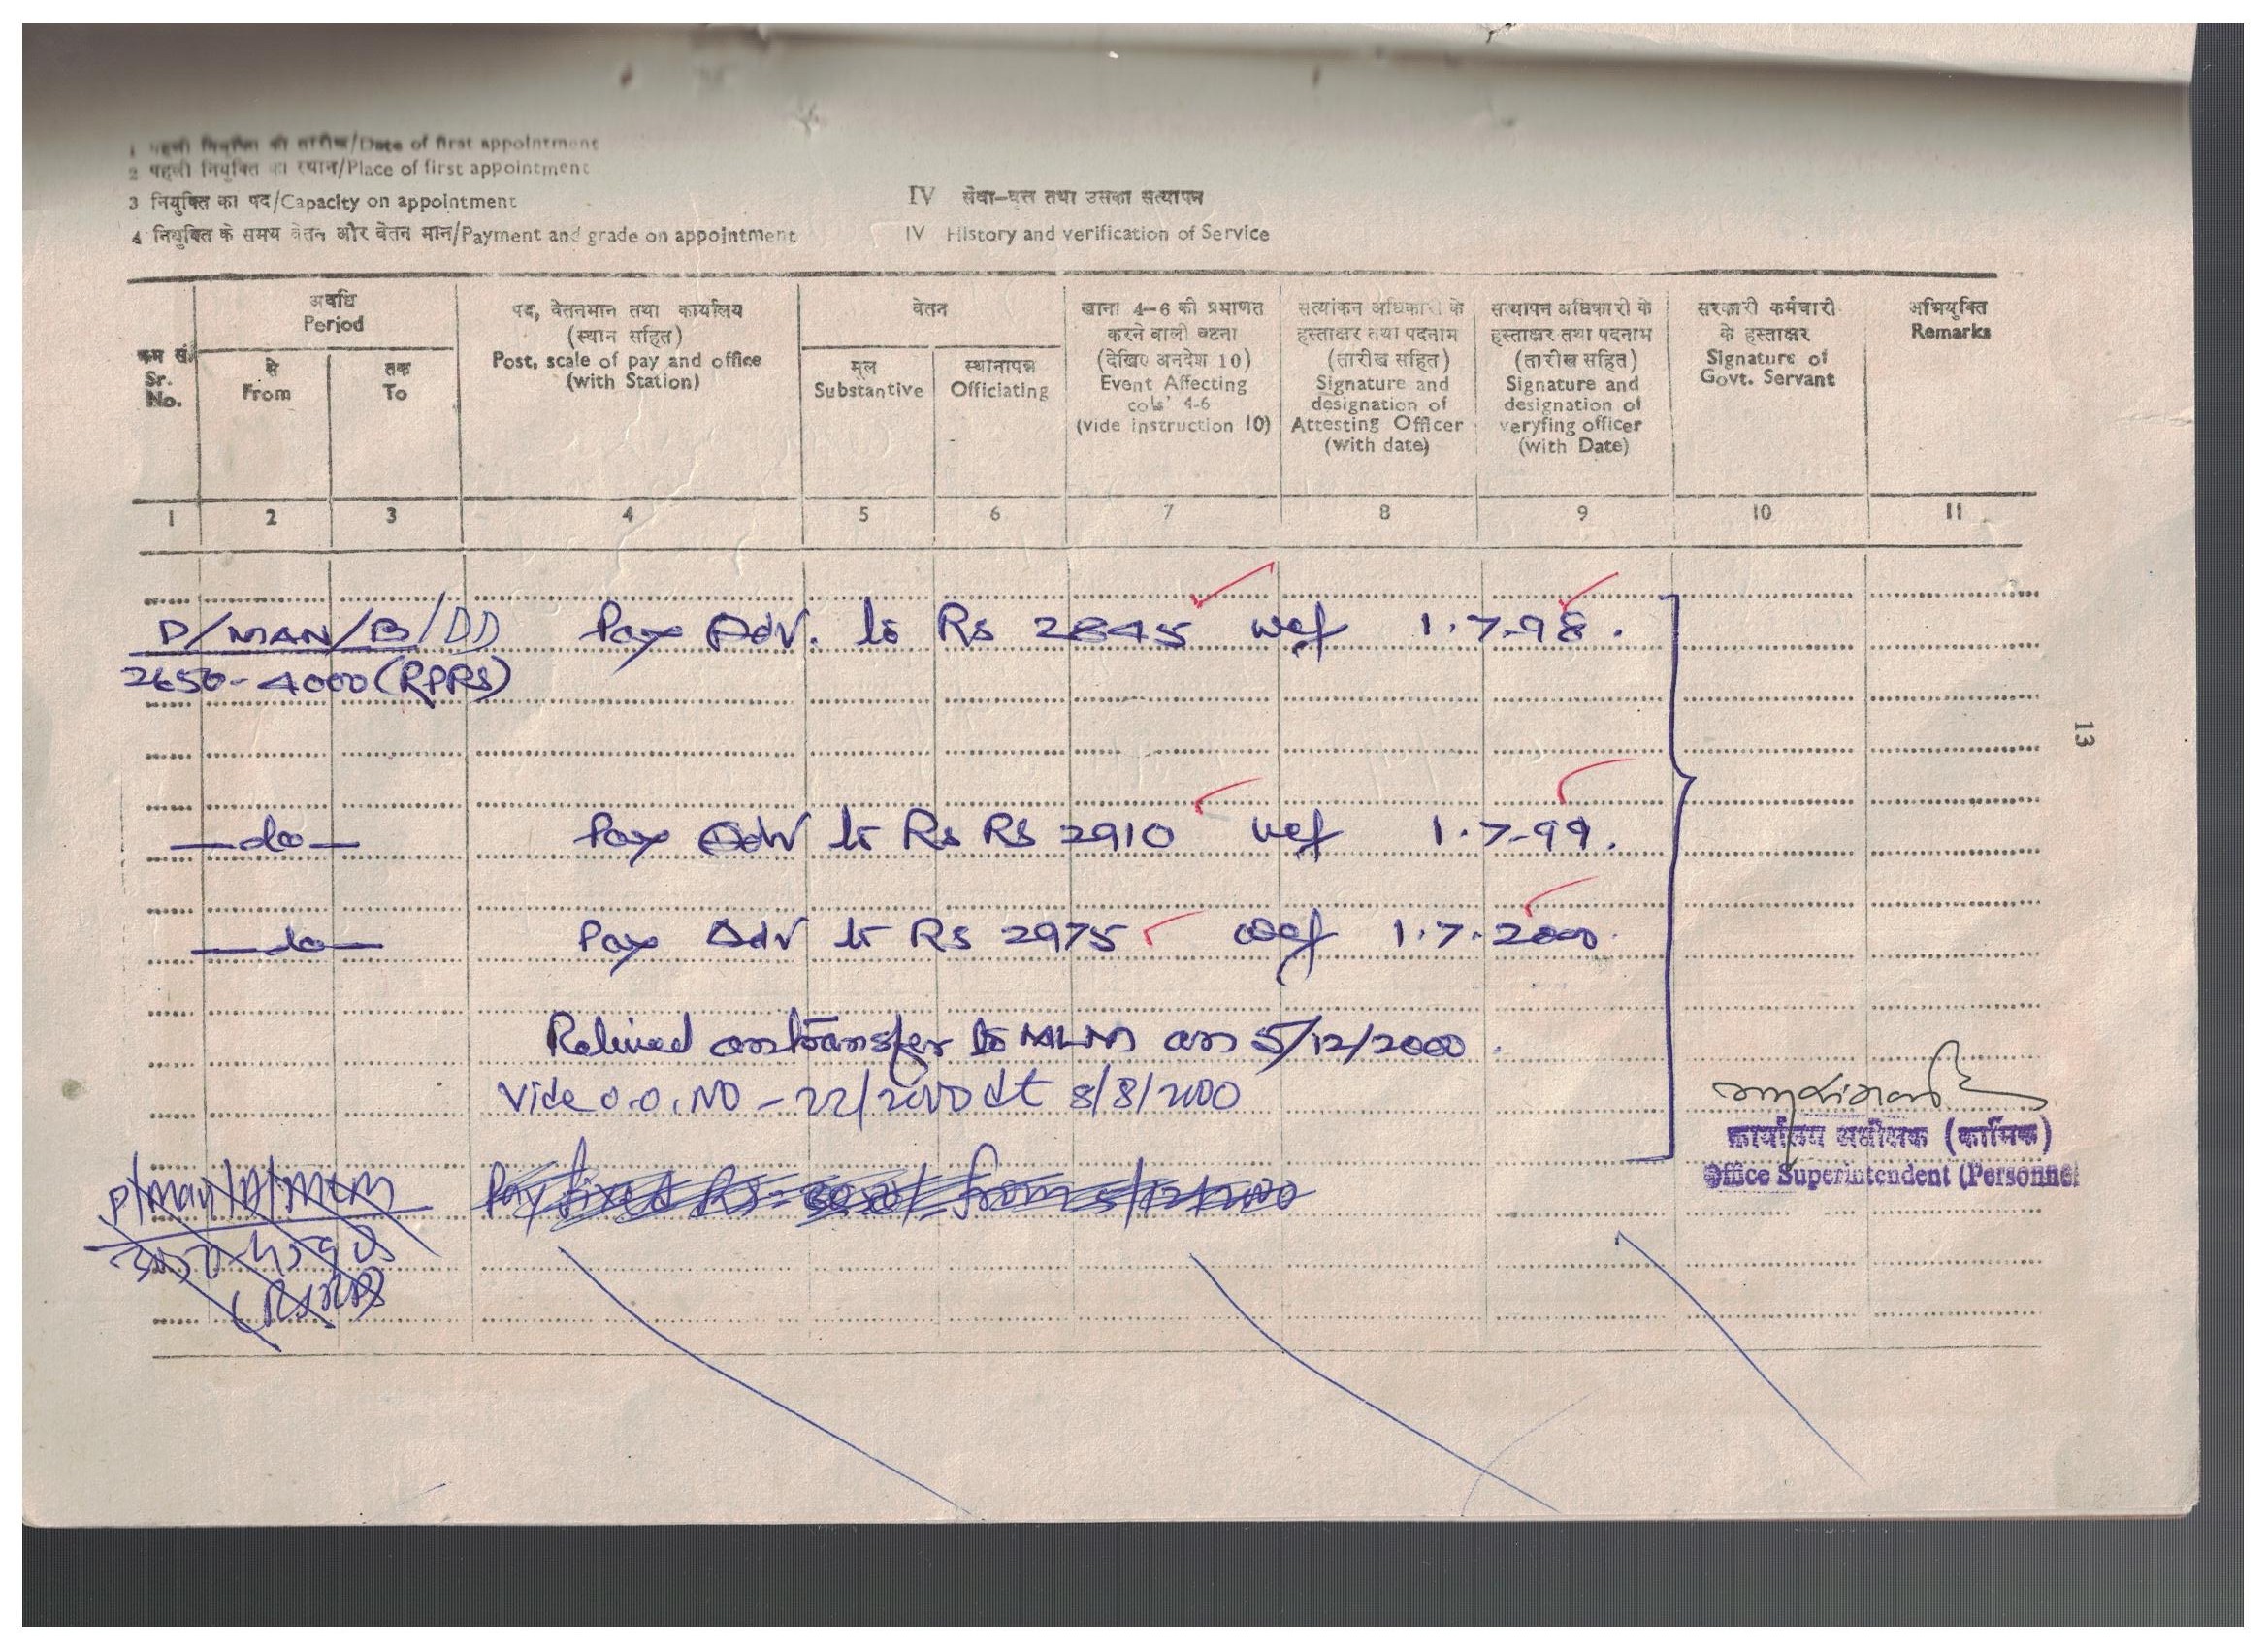 1 पहली नियुक्ति की तारीख/Date of first appointment
2 पहली नियुक्ति का स्थान/Place of first appointment
3 नियुक्ति का पद/Capacity on appointment
4 नियुक्ति के समय वेतन और वेतन मान/Payment and grade on appointment
IV सेवा-वृत्त तथा उसका सत्यापन
IV History and verification of Service
क्रम सं.
Sr.
No.
अवधि
Period
से
From
तक
To
पद, वेतनमान तथा कार्यालय
(स्थान सहित)
Post, scale of pay and office
(with Station)
वेतन
मूल
Substantive
स्थानापन्न
Officiating
खाना 4-6 की प्रमाणत
करने वाली घटना
(देखिए अनदेश 10)
Event Affecting
cols' 4-6
(vide instruction 10)
सत्यांकन अधिकारी के
हस्ताक्षर तथा पदनाम
(तारीख सहित)
Signature and
designation of
Attesting Officer
(with date)
सत्यापन अधिकारी के
हस्ताक्षर तथा पदनाम
(तारीख सहित)
Signature and
designation of
veryfing officer
(with Date)
सरकारी कर्मचारी
के हस्ताक्षर
Signature of
Govt. Servant
अभियुक्ति
Remarks
1 2 3 4 5 6 7 8 9 10 11
P/MAN/B/DD Pay Adv. to Rs 2845 wef 1.7.98.
2650-4000(RPRS)
13
—do— Pay Adv to Rs RS 2910 wef 1.7.99.
—do— Pay Adv to Rs 2975 wef 1.7.2000.
Relived on transfer to MLM on 5/12/2000.
Vide O.O.NO - 22/2000 dt 8/8/2000
कार्यालय अधीक्षक (कार्मिक)
Office Superintendent (Personnel
P/Man/A/MLM Pay fixed Rs- 3050/ from 5/12/2000
(RSRP)